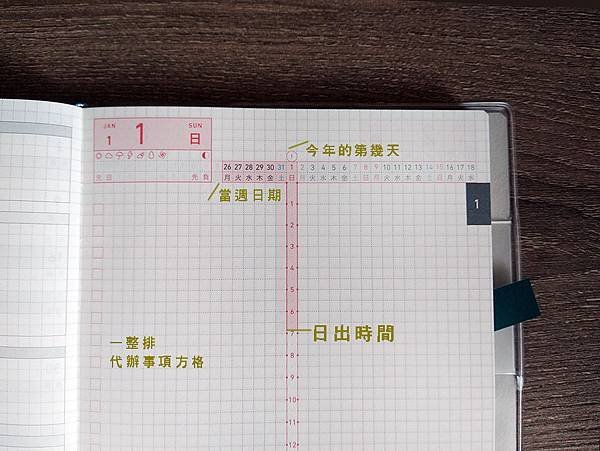 JAN SUN
1 1 日
元日 先負
今年的第幾天
1
26 27 28 29 30 31 1 2 3 4 5 6 7 8 9 10 11 12 13 14 15 16 17 18
月 火 水 木 金 土 日 月 火 水 木 金 土 日 月 火 水 木 金 土 日 月 火 水
當週日期
1
1
2
3
4
5
6
日出時間
7
一整排
代辦事項方格
8
9
10
11
12